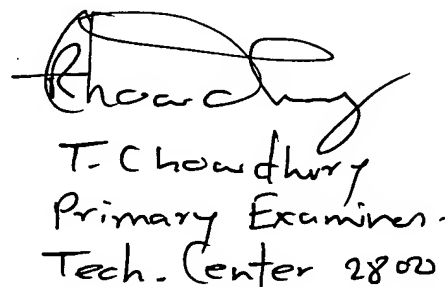 TChowdhury
T. Chowdhury
Primary Examiner.
Tech. Center 2800